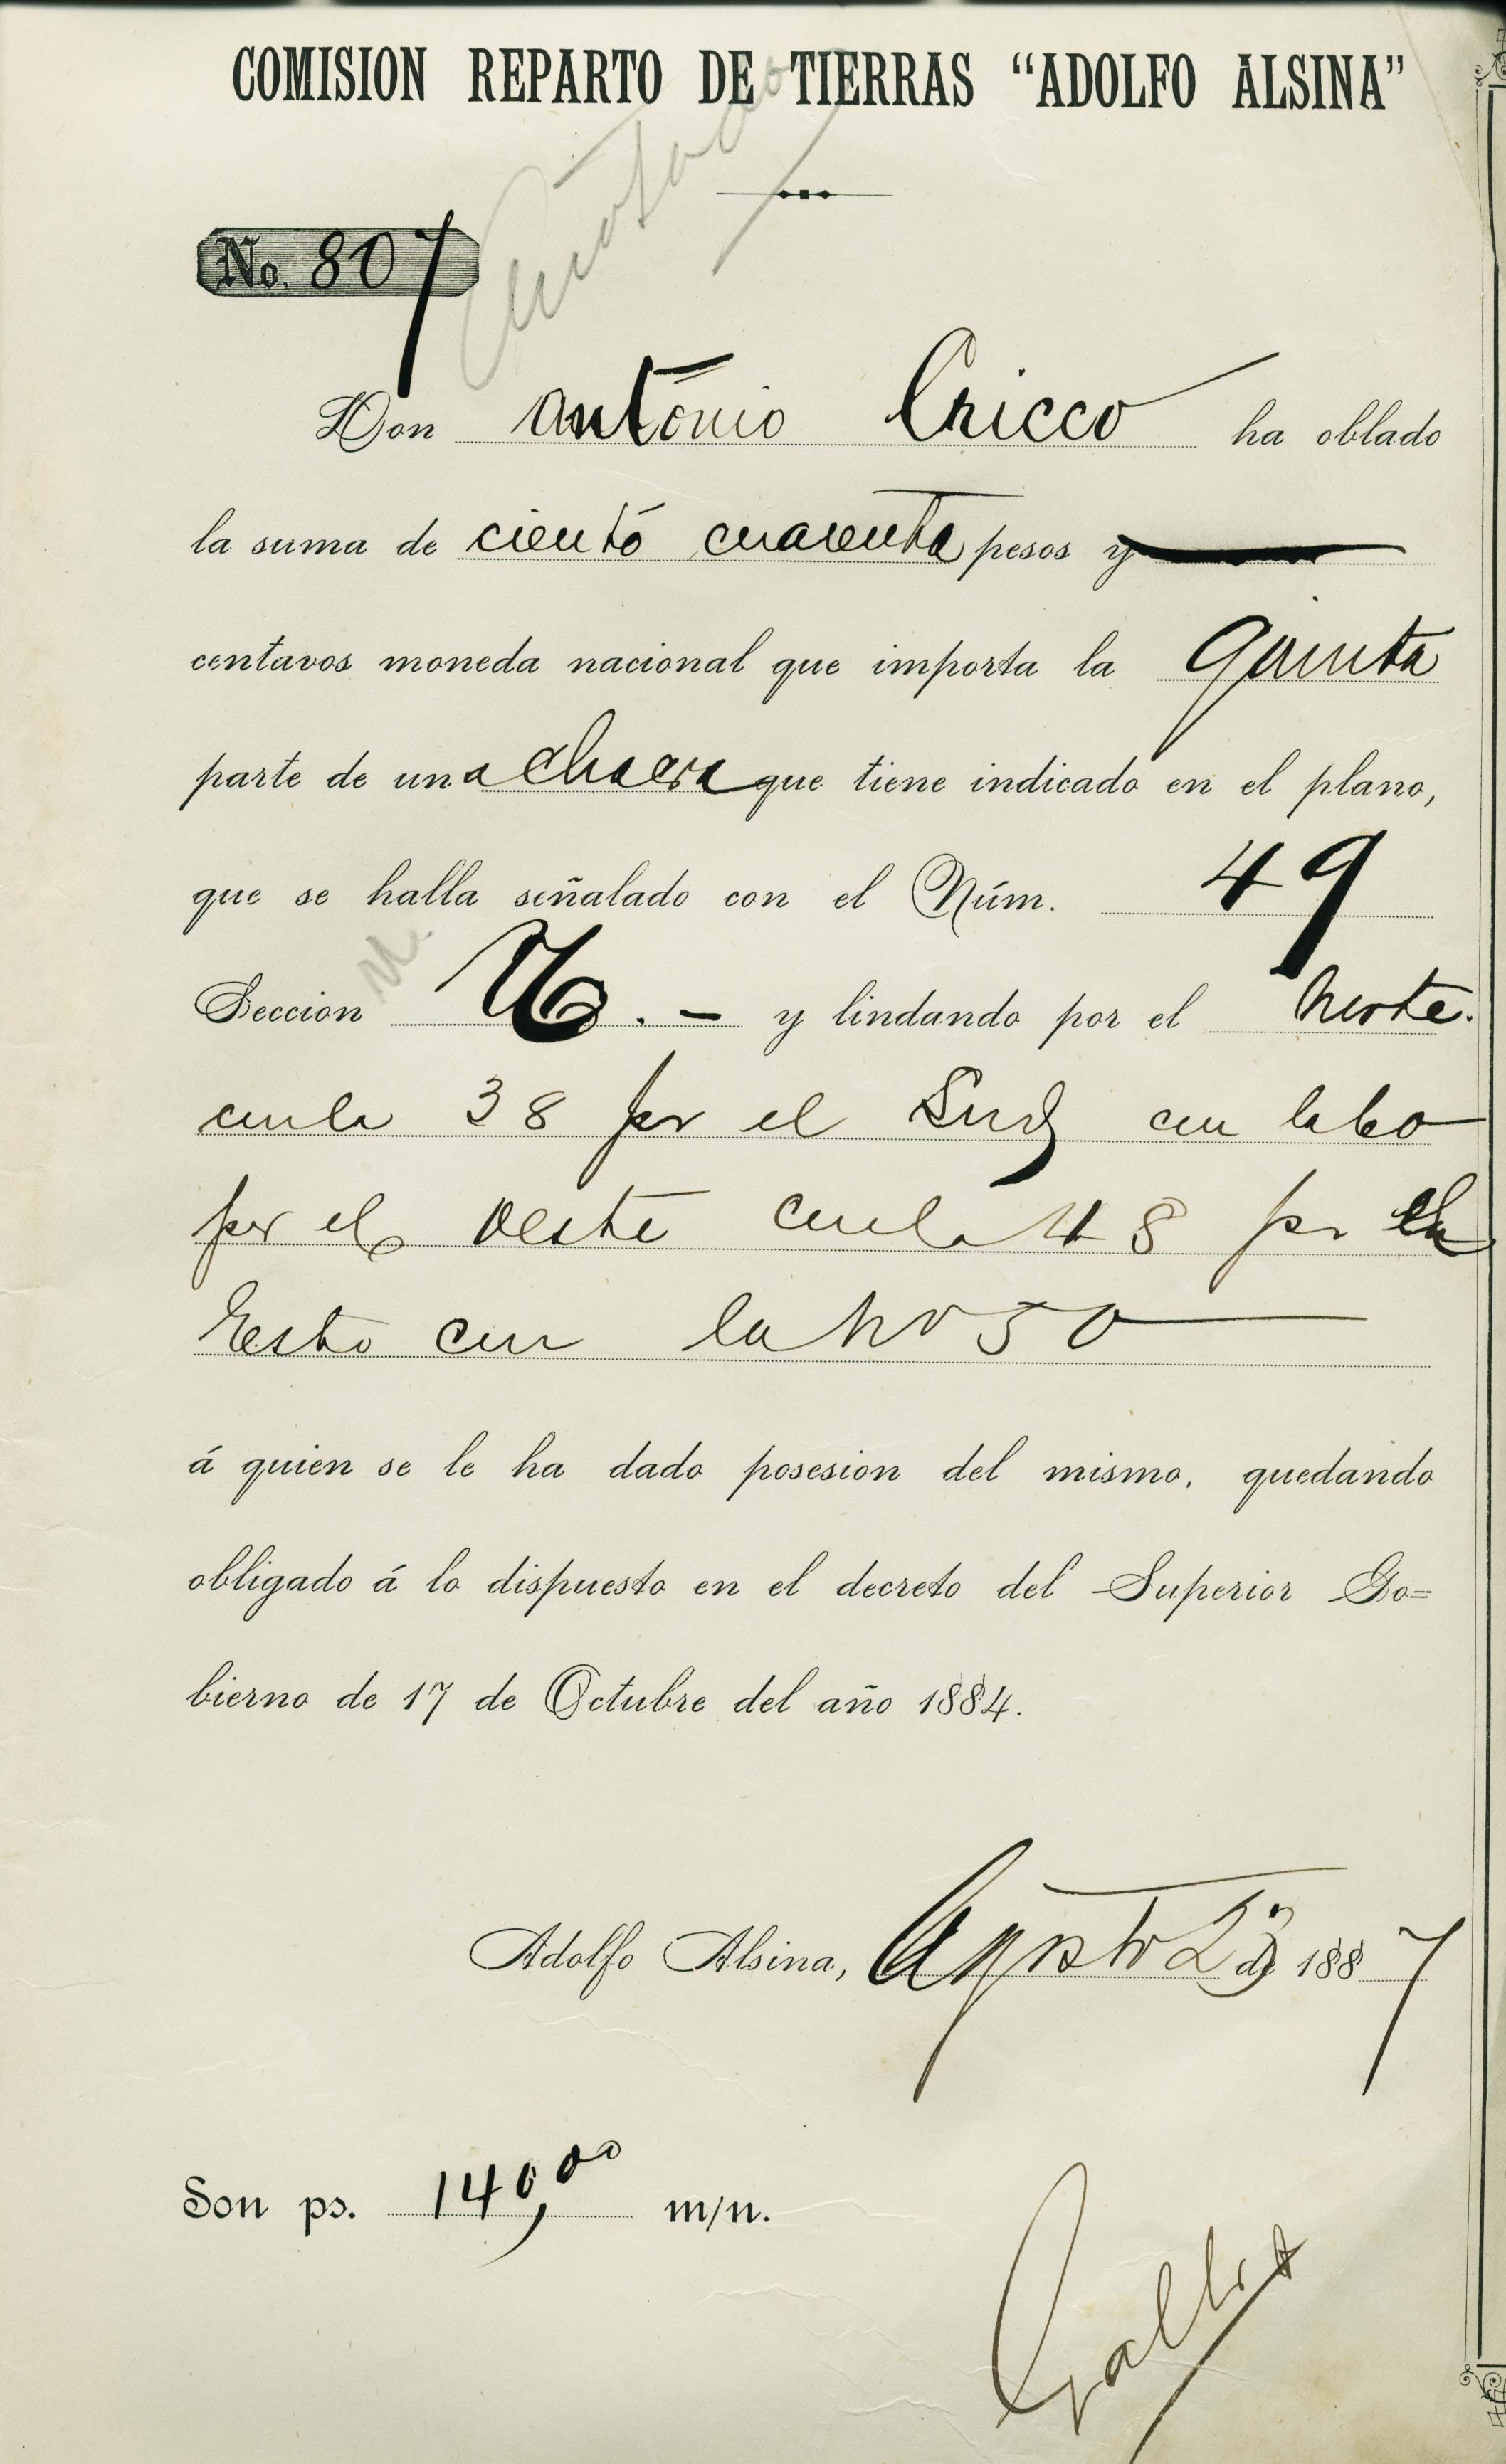 COMISION REPARTO DE TIERRAS “ADOLFO ALSINA”
Anotado
No. 807
Don Antonio Cricco ha oblado
la suma de ciento cuarenta pesos y
centavos moneda nacional que importa la quinta
parte de una chacra que tiene indicado en el plano,
que se halla señalado con el Núm. 49
Seccion y lindando por el Norte.
con la 38 por el Sud con la 60
por el Oeste con la 48 por el
Este con la No 50
á quien se le ha dado posesion del mismo, quedando
obligado á lo dispuesto en el decreto del Superior Go=
bierno de 17 de Octubre del año 1884.
Adolfo Alsina, Agosto 23 de 1887
Son ps. 140,00 m/n.